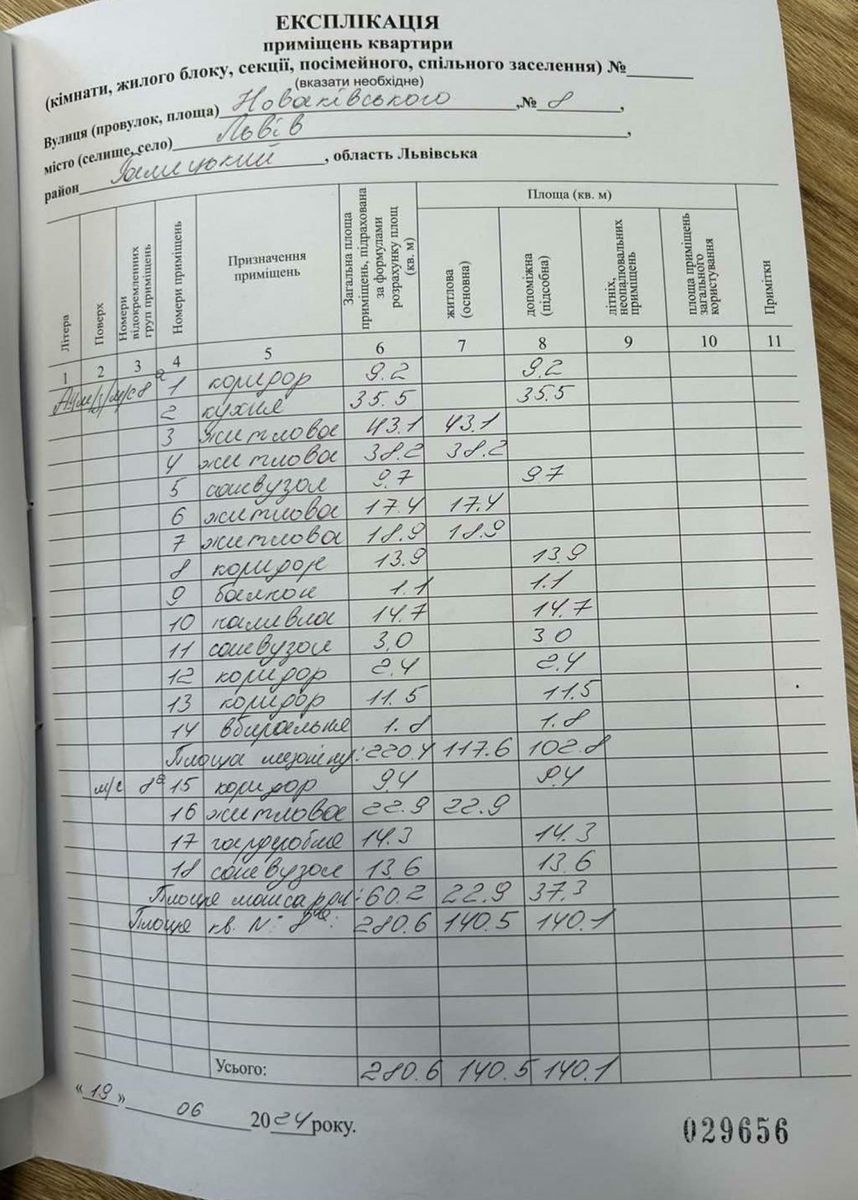 ЕКСПЛІКАЦІЯ
приміщень квартири
(кімнати, жилого блоку, секції, посімейного, спільного заселення) №
(вказати необхідне)
Вулиця (провулок, площа) Новаківського, № 8,
місто (селище, село) Львів,
район Галицький, область Львівська
Літера
Поверх
Номери відокремленних груп приміщень
Номери приміщень
Призначення приміщень
Загальна площа приміщень, підрахована за формулами розрахунку площ (кв. м)
Площа (кв. м)
житлова (основна)
допоміжна (підсобна)
літніх, неопалювальних приміщень
площа приміщень загального користування
Примітки
1 2 3 4 5 6 7 8 9 10 11
8а 1 коридор 9.2 9.2
2 кухня 35.5 35.5
3 житлова 43.1 43.1
4 житлова 38.2 38.2
5 санвузол 9.7 9.7
6 житлова 17.4 17.4
7 житлова 18.9 18.9
8 коридор 13.9 13.9
9 балкон 1.1 1.1
10 паливна 14.7 14.7
11 санвузол 3.0 3.0
12 коридор 2.4 2.4
13 коридор 11.5 11.5
14 вбиральня 1.8 1.8
Площа : 220.4 117.6 102.8
м/с 8а 15 коридор 9.4 9.4
16 житлова 22.9 22.9
17 гардеробна 14.3 14.3
18 санвузол 13.6 13.6
Площа мансарди: 60.2 22.9 37.3
Площа кв. № 8"а": 280.6 140.5 140.1
Усього: 280.6 140.5 140.1
"19" 06 2024 року.
029656